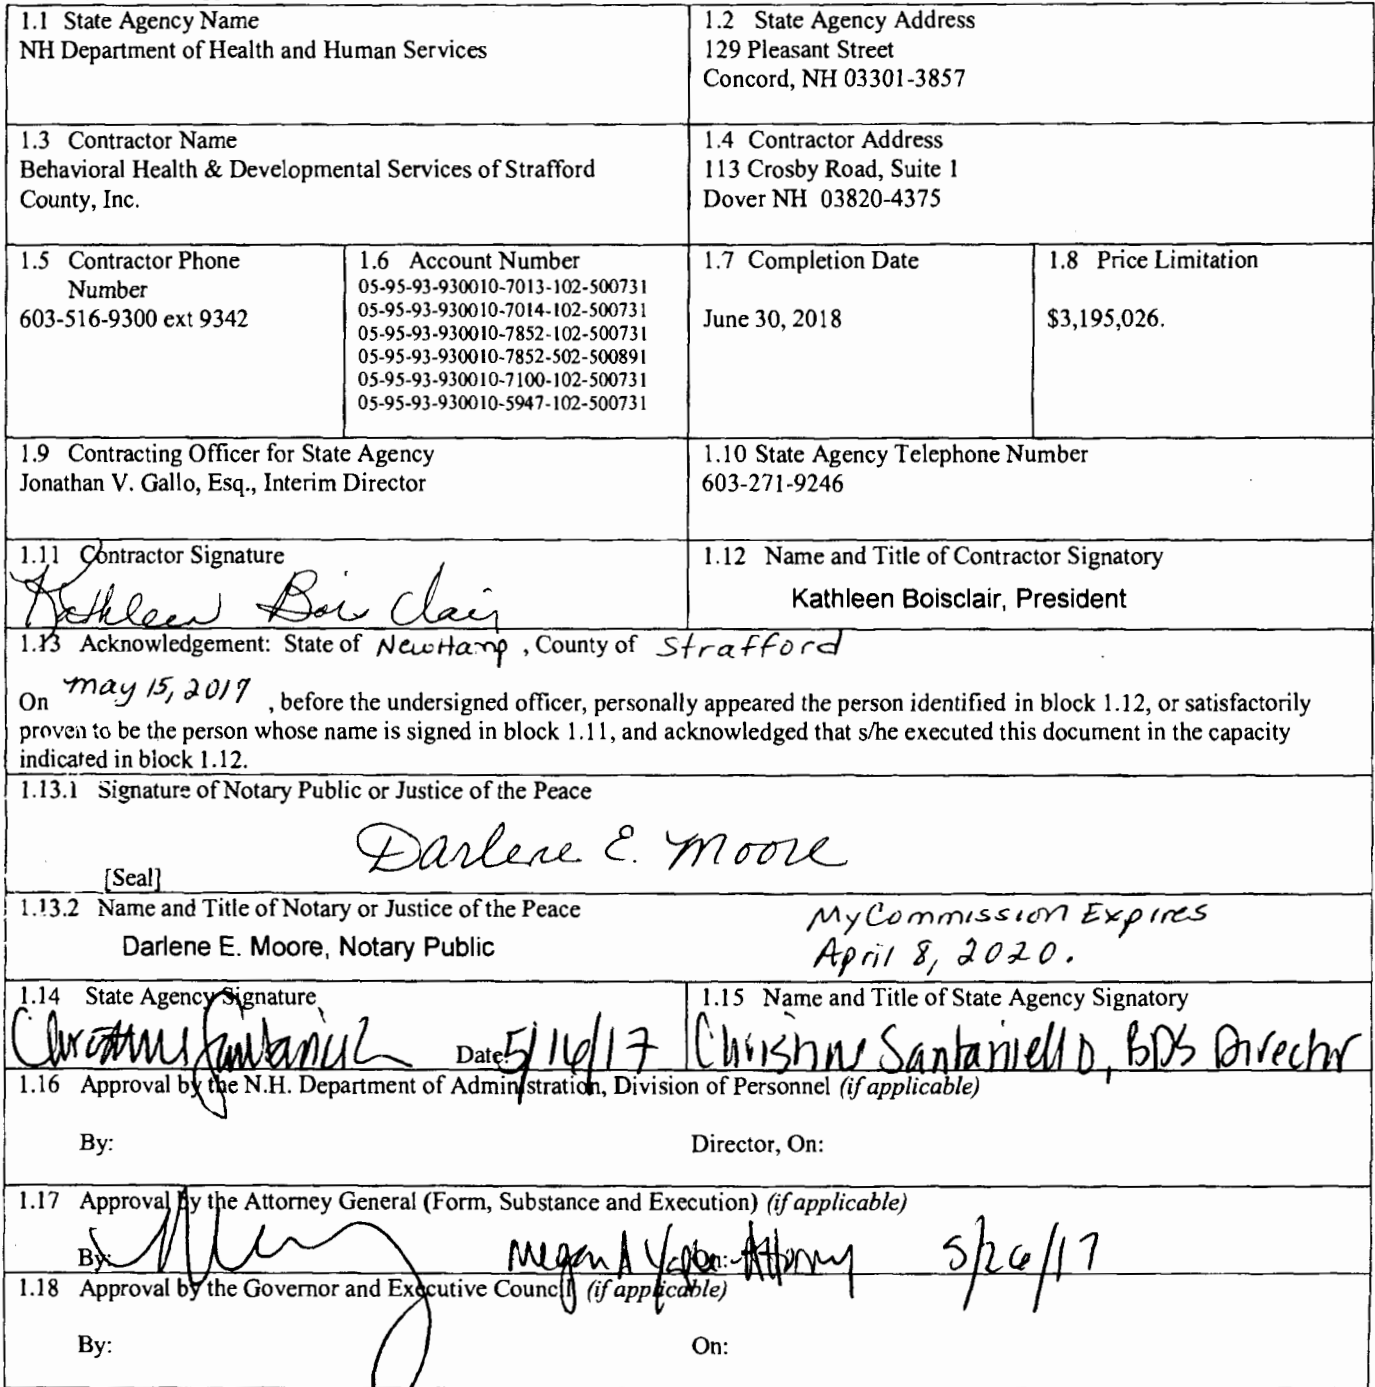 1.1 State Agency Name
NH Department of Health and Human Services
1.2 State Agency Address
129 Pleasant Street
Concord, NH 03301-3857
1.3 Contractor Name
Behavioral Health & Developmental Services of Strafford
County, Inc.
1.4 Contractor Address
113 Crosby Road, Suite 1
Dover NH 03820-4375
1.5 Contractor Phone
Number
603-516-9300 ext 9342
1.6 Account Number
05-95-93-930010-7013-102-500731
05-95-93-930010-7014-102-500731
05-95-93-930010-7852-102-500731
05-95-93-930010-7852-502-500891
05-95-93-930010-7100-102-500731
05-95-93-930010-5947-102-500731
1.7 Completion Date
June 30, 2018
1.8 Price Limitation
$3,195,026.
1.9 Contracting Officer for State Agency
Jonathan V. Gallo, Esq., Interim Director
1.10 State Agency Telephone Number
603-271-9246
1.11 Contractor Signature
Kathleen Bois Clair
1.12 Name and Title of Contractor Signatory
Kathleen Boisclair, President
1.13 Acknowledgement: State of NewHamp , County of Strafford
On May 15, 2017 , before the undersigned officer, personally appeared the person identified in block 1.12, or satisfactorily
proven to be the person whose name is signed in block 1.11, and acknowledged that s/he executed this document in the capacity
indicated in block 1.12.
1.13.1 Signature of Notary Public or Justice of the Peace
Darlene E. Moore
[Seal]
1.13.2 Name and Title of Notary or Justice of the Peace
Darlene E. Moore, Notary Public
My Commission Expires
April 8, 2020.
1.14 State Agency Signature
Christine Santaniello Date: 5/16/17
1.15 Name and Title of State Agency Signatory
Christine Santaniello, BDS Director
1.16 Approval by the N.H. Department of Administration, Division of Personnel (if applicable)
By: Director, On:
1.17 Approval by the Attorney General (Form, Substance and Execution) (if applicable)
By: Megan A On: Attorney 5/26/17
1.18 Approval by the Governor and Executive Council (if applicable)
By: On: